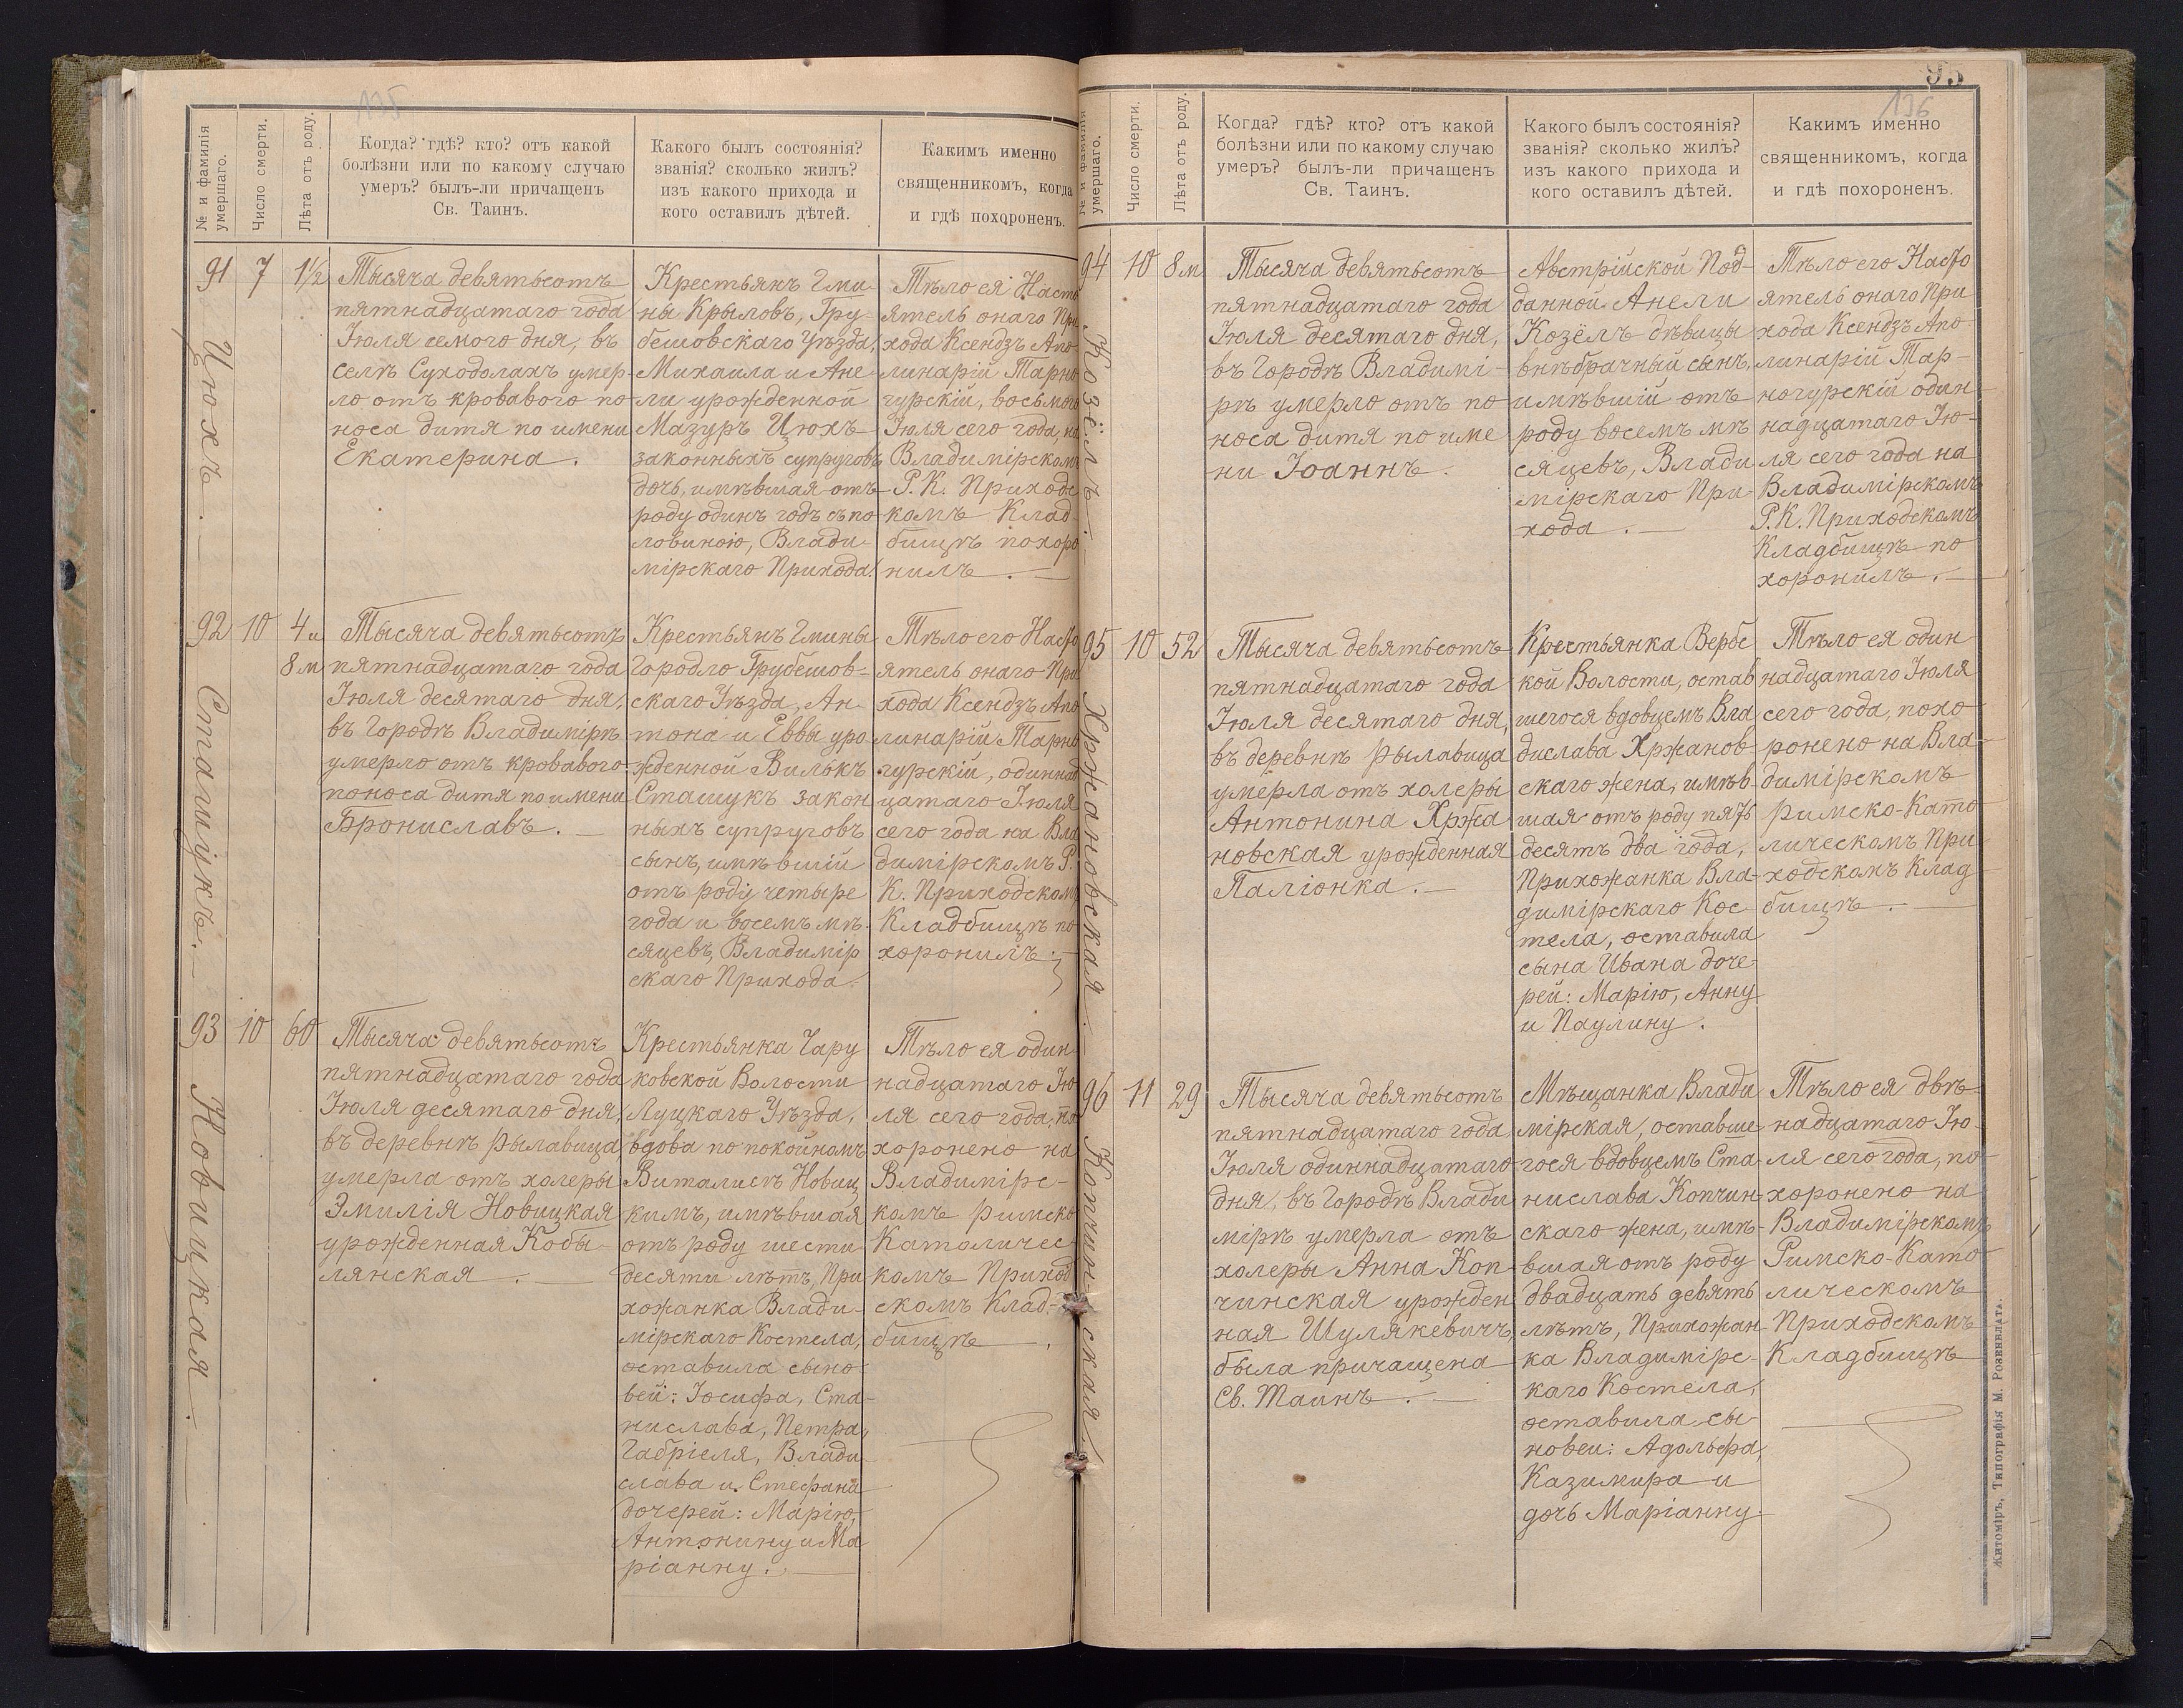 135
№ и фамилія
умершаго.
Число смерти.
Лѣта отъ роду.
Когда? гдѣ? кто? отъ какой
болѣзни или по какому случаю
умеръ? былъ-ли причащенъ
Св. Таинъ.
Какого былъ состоянія?
званія? сколько жилъ?
изъ какого прихода и
кого оставилъ дѣтей.
Какимъ именно
священникомъ, когда
и гдѣ похороненъ.
91
Цюхъ.
7
1½
Тысяча девятьсотъ
пятнадцатаго года
Іюля семого дня, въ
селѣ Суходолахъ умер-
ло отъ кровавого по-
носа дитя по имени
Екатерина.
Крестьянъ Гми-
ны Крыловъ, Гру-
бешовскаго Уѣзда,
Михаила и Ане-
ли урожденной
Мазуръ Цюхъ
законныхъ супруговъ
дочь, имѣвшая отъ
роду одинъ годъ съ по-
ловиною, Влади-
мірскаго Прихода.
Тѣло ея Насто
ятель онаго При
хода Ксендзъ Апо-
линарій Тарно
гурскій, восьмого
Іюля сего года, на
Владимірскомъ
Р. К. Приходс
комъ Клад-
бищѣ похоро
нилъ.
92
Сташукъ.
10
4 и
8 м
Тысяча девятьсотъ
пятнадцатаго года
Іюля десятаго дня,
въ Городѣ Владимірѣ
умерло отъ кровавого
поноса дитя по имени
Брониславъ.
Крестьянъ Гмины
Городло Грубешов-
скаго Уѣзда, Ан-
тона и Еввы уро
жденной Вилькъ
Сташукъ закон
ныхъ супруговъ
сынъ, имѣвшій
отъ роду четыре
года и восемь мѣ-
сяцевъ, Владимір
скаго Прихода.
Тѣло его Насто
ятель онаго При
хода Ксендзъ Апо
линарій Тарно
гурскій, одиннад
цатаго Іюля
сего года на Вла
димірскомъ Р.
К. Приходскомъ
Кладбищѣ по
хоронилъ.
93
Новицкая.
10
60
Тысяча девятьсотъ
пятнадцатаго года
Іюля десятаго дня,
въ деревнѣ Рылавица
умерла отъ холеры
Эмилія Новицкая
урожденная Кобы-
лянская.
Крестьянка Чару
ковской Волости
Луцкаго Уѣзда,
вдова по покойномъ
Виталисѣ Новиц
кимъ, имѣвшая
отъ роду шести
десяти лѣтъ, При
хожанка Влади-
мірскаго Костела,
оставила сыно-
вей: Іосифа, Ста-
нислава, Петра,
Габріеля, Влади-
слава и Стефана
дочерей: Марію,
Антонину и Ма
ріанну.
Тѣло ея один-
надцатаго Ію
ля сего года, по
хоронено на
Владимірс-
комъ Римско
Католичес-
комъ Приход
скомъ Клад-
бищѣ.
95
136
№ и фамилія
умершаго.
Число смерти.
Лѣта отъ роду.
Когда? гдѣ? кто? отъ какой
болѣзни или по какому случаю
умеръ? былъ-ли причащенъ
Св. Таинъ.
Какого былъ состоянія?
званія? сколько жилъ?
изъ какого прихода и
кого оставилъ дѣтей.
Какимъ именно
священникомъ, когда
и гдѣ похороненъ.
94
Козёлъ.
10
8 м
Тысяча девятьсотъ
пятнадцатаго года
Іюля десятаго дня,
въ Городѣ Владимі-
рѣ умерло отъ по
носа дитя по име
ни Іоаннъ.
Австрійской Под-
данной Анели
Козёлъ дѣвицы
внѣбрачный сынъ,
имѣвшій отъ
роду восемь мѣ
сяцевъ, Влади
мірскаго При-
хода.
Тѣло его Насто
ятель онаго При
хода Ксендзъ Апо
линарій Тар-
ногурскій один-
надцатаго Ію-
ля сего года на
Владимірскомъ
Р. К. Приходскомъ
Кладбищѣ по
хоронилъ.
95
Хржановская.
10
52
Тысяча девятьсотъ
пятнадцатаго года
Іюля десятаго дня,
въ деревнѣ Рылавица
умерла отъ холеры
Антонина Хржа
новская урожденная
Паліонка.
Крестьянка Вербс
кой Волости, остав
шегося вдовцемъ Вла
дислава Хржанов-
скаго жена, имѣв-
шая отъ роду пять
десятъ два года,
Прихожанка Вла-
димірскаго Кос-
тела, оставила
сына Ивана доче-
рей: Марію, Анну
и Паулину.
Тѣло ея один
надцатаго Іюля
сего года, похо-
ронено на Вла-
димірскомъ
Римско-Като
лическомъ При
ходскомъ Клад
бищѣ.
96
Копчин-
ская.
11
29
Тысяча девятьсотъ
пятнадцатаго года,
Іюля одиннадцатаго
дня, въ Городѣ Влади
мірѣ умерла отъ
холеры Анна Коп
чинская урожден
ная Шулякевичъ,
была причащена
Св. Таинъ.
Мѣщанка Влади
мірская, оставше-
гося вдовцемъ Ста-
нислава Копчин-
скаго жена, имѣ-
вшая отъ роду
двадцать девять
лѣтъ, Прихожан-
ка Владимірс-
каго Костела,
оставила сы-
новеи: Адольфа,
Казимира и
дочь Маріанну.
Тѣло ея двѣ-
надцатаго Ію-
ля сего года, по-
хоронено на
Владимірскомъ
Римско-Като
лическомъ
Приходскомъ
Кладбищѣ
Житоміръ, Типографія М. Розенблатъ.